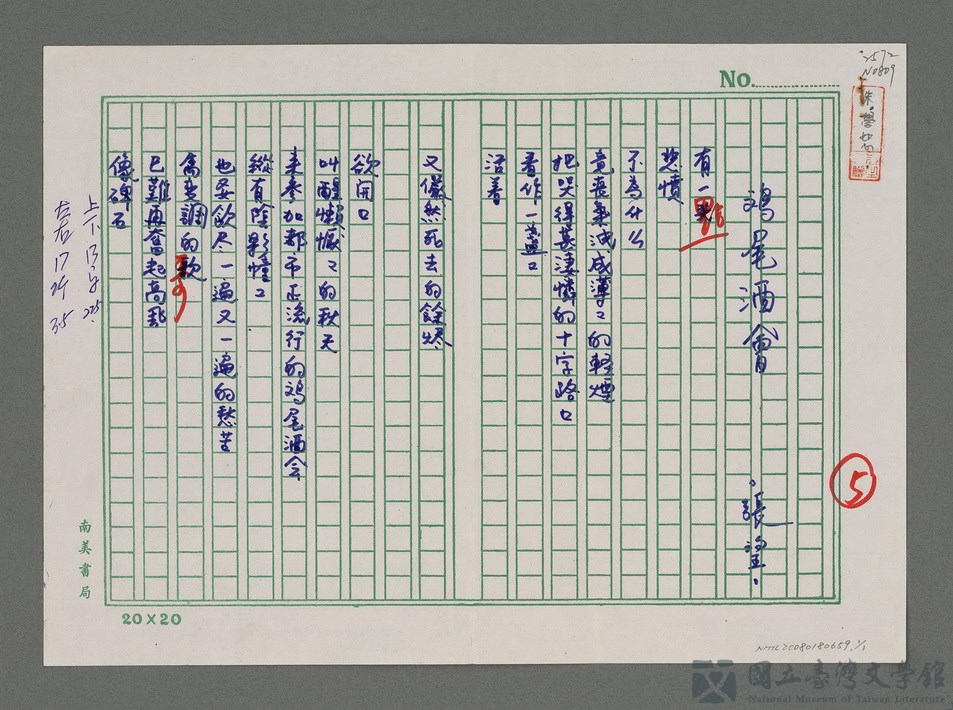 2572
N0809
No.
朱學恕
雞尾酒會
張望
有一點
悲憤
不為什么
竟喪氣浅成薄〻的輕煙
把哭得甚淒憐的十字路口
看作一盞〻
活着
又儼然死去的餘燼
欲開口
叫醒懶慨〻的秋天
来參加都市正流行的鸡尾酒会
縱有陰影幢〻
也要飲尽一遍又一遍的愁苦
寓变調的歌
已難再奮起高飛
像碑石
5
上下 17字
左右 17行 35
南美書局
20×20
NMTL20080180659 1/1
國立臺灣文學館
National Museum of Taiwan Literature